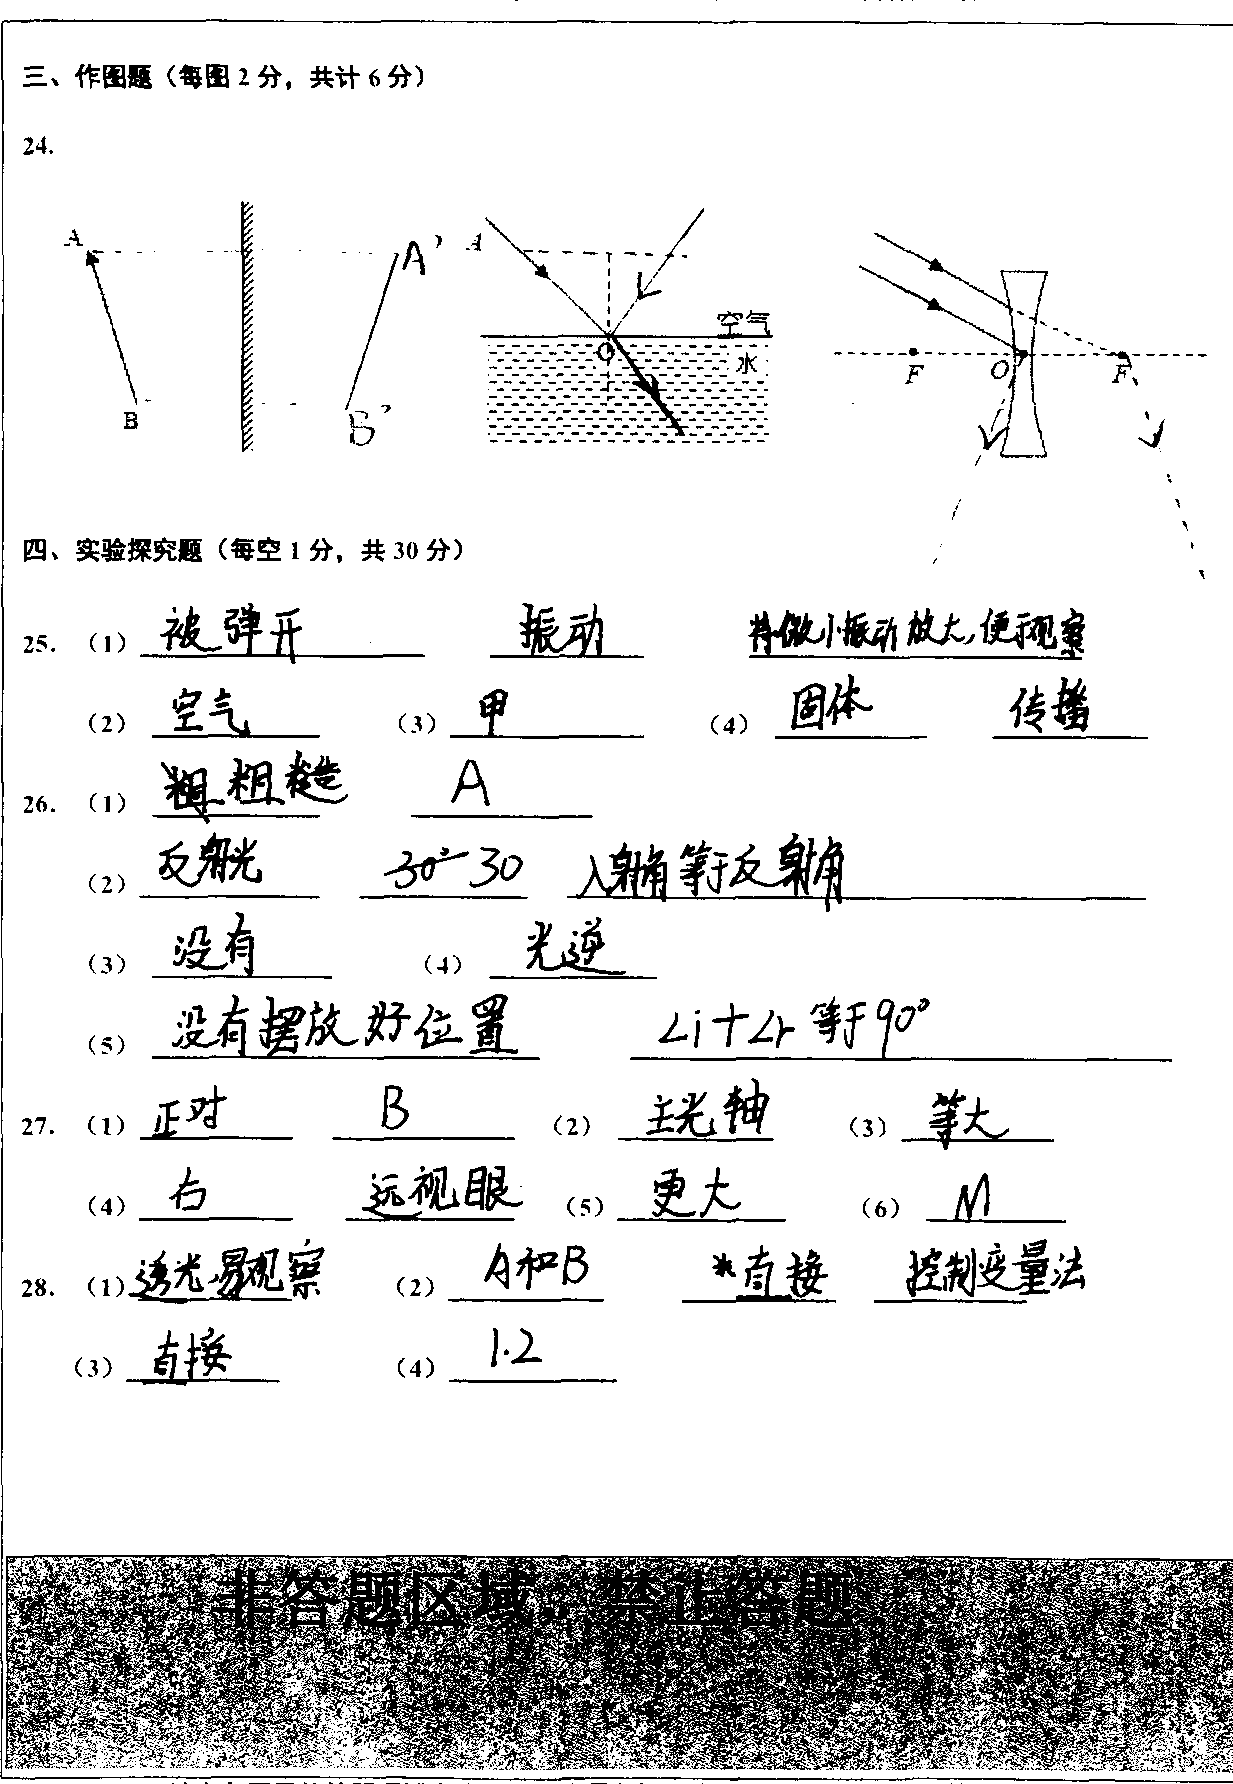 三、作图题（每图 2 分，共计 6 分）
24.
A A' A 空气
O 水 F O F
B B'
四、实验探究题（每空 1 分，共 30 分）
25. （1） 被弹开 振动 将微小振动放大,便于观察
（2） 空气 （3） 甲 （4） 固体 传播
26. （1） 粗糙 A
（2） 反射光 30° 30 入射角等于反射角
（3） 没有 （4） 光逆
（5） 没有摆放好位置 ∠i+∠r等于90°
27. （1） 正对 B （2） 主光轴 （3） 等大
（4） 右 远视眼 （5） 更大 （6） M
28. （1） 透光,易观察 （2） A和B 直接 控制变量法
（3） 直接 （4） 1.2
非答题区域，禁止答题